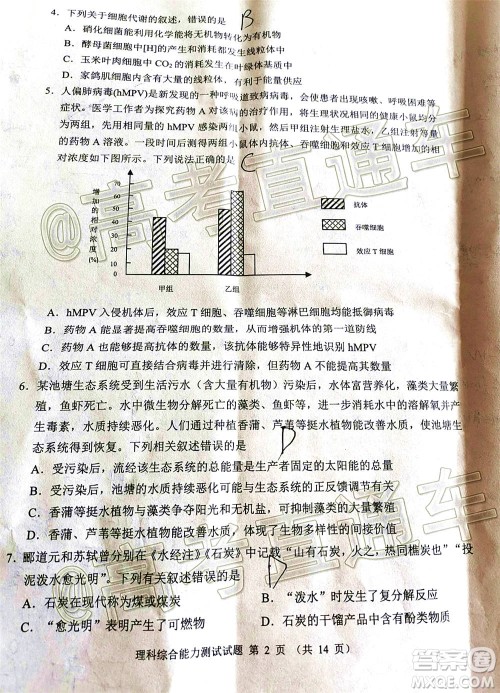 4. 下列关于细胞代谢的叙述，错误的是 B
A．硝化细菌能利用化学能将无机物转化为有机物
B．酵母菌细胞中的[H]的产生和消耗都在线粒体中
C．玉米叶肉细胞中 CO₂ 的消耗发生在叶绿体基质中
D．家鸽肌细胞内含有大量的线粒体，利于有氧呼吸
5. 人偏肺病毒(hMPV)是新发现的一种呼吸道致病病毒，感染者会出现咳嗽、呼吸困难等
症状。医学工作者为探究药物 A
为两组，先用相同量的 hMPV 感染两组小鼠，然后甲组注射生理盐水，乙组注射
的药物 A 溶液。一段时间后，测量小鼠体内抗体、吞噬细胞、效应 T 细胞的相
对浓度如下图所示。下列说法正确的是 C
增加的相对浓度(%)
70
60
50
40
30
20
10
0
甲组 乙组
抗体
吞噬细胞
效应 T 细胞
A．hMPV 入侵机体后，效应 T 细胞、吞噬细胞等淋巴细胞均能抵御病毒
B．药物 A 能显著提高吞噬细胞的数量，以增强免疫的第一道防线
C．药物 A 也能够提高效应 T 细胞的数量，而效应 T 细胞能够特异性地识别抗原
D．效应 T 细胞可以直接结合病毒并裂解病毒，从而提高机体的免疫力
6. 某池塘生态系统受到生活污水（含大量有机物）污染后，水体富营养化，藻类大量繁
殖，鱼虾死亡。水中微生物分解死亡的藻类、鱼虾等，会大量繁殖
生毒素，水质变差，再次引起鱼虾死亡。后通过种植香蒲、芦苇等挺水植物，该生
态系统得到恢复。下列相关叙述错误的是 D
A．受污染后，流经该生态系统的总能量是生产者固定的太阳能的总量
B．受污染后，池塘的水质持续变差，这种调节方式属于正反馈调节
C．香蒲等挺水植物与藻类竞争阳光，从而抑制藻类的生长繁殖
D．香蒲、芦苇等挺水植物能吸收污水中的有机物，从而抑制
7. 郦道元和苏轼曾分别在《水经注》《石炭》中记载“山有石炭，火之，热同樵炭也”“投
泥泼水愈光明”。下列有关叙述错误的是 D
A．石炭在现代称为煤或煤炭
B．“泼水”时发生了物理变化和化学变化
C．“愈光明”时可能生成了水煤气
D．石炭的干馏产品中含有酚类物质
理科综合能力测试试题 第 2 页 （共 14 页）
@高考直通车
@高考直通车